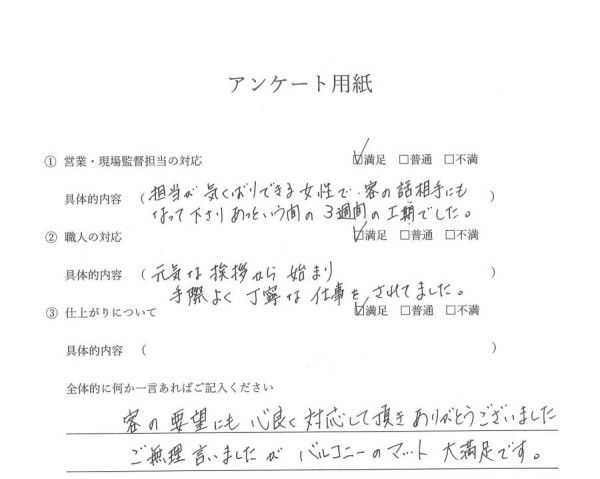 アンケート用紙
① 営業・現場監督担当の対応 ☑満足 □普通 □不満
具体的内容 (担当が気くばりできる女性で、客の話相手にも
なって下さりあっという間の3週間の工期でした。)
② 職人の対応 ☑満足 □普通 □不満
具体的内容 (元気な挨拶から始まり
手際よく丁寧な仕事をされてました。)
③ 仕上がりについて ☑満足 □普通 □不満
具体的内容 ( )
全体的に何か一言あればご記入ください
客の要望にも心良く対応して頂きありがとうございました
ご無理言いましたがバルコニーのマット大満足です。